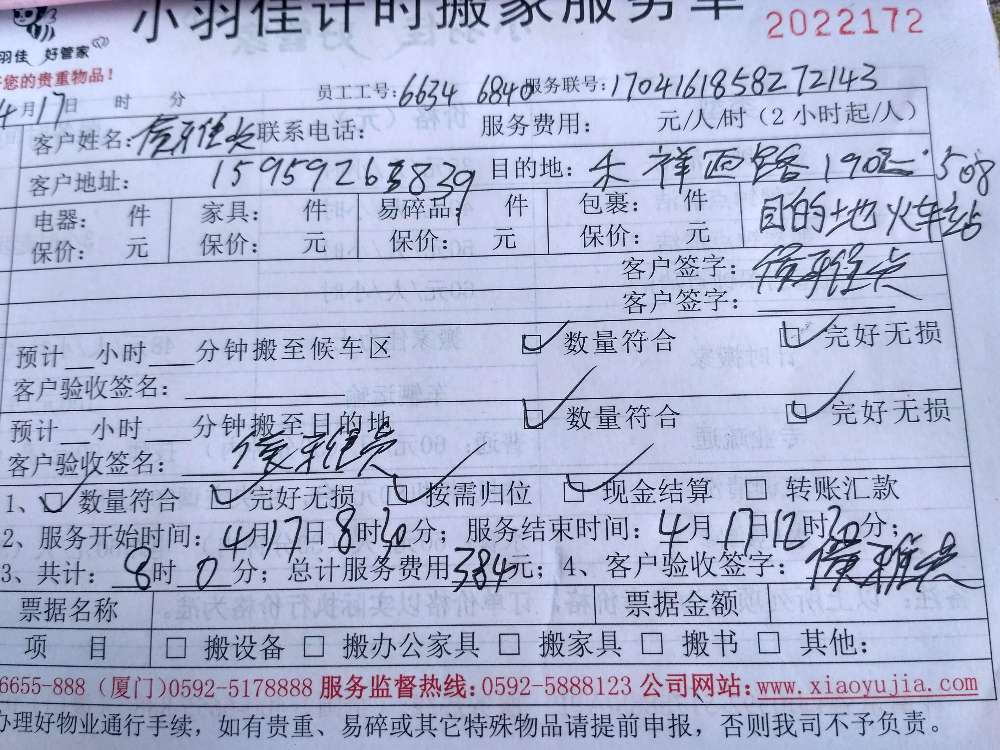 小羽佳计时搬家服务单
2022172
羽佳 好管家
您的贵重物品！
4月17日 时 分 员工工号：6634 6840 服务联号：1704161858272143
客户姓名： 联系电话： 服务费用： 元/人/时（2小时起/人）
客户地址： 15959263839 目的地： 祥西路190 508
电器： 件 家具： 件 易碎品： 件 包裹： 件 目的地火车站
保价： 元 保价： 元 保价： 元 保价： 元
客户签字：
客户签字：
预计__小时___分钟搬至候车区 □ 数量符合 □ 完好无损
客户验收签名：
预计__小时___分钟搬至目的地 □ 数量符合 □ 完好无损
客户验收签名：
1、□ 数量符合 □ 完好无损 □ 按需归位 □ 现金结算 □ 转账汇款
2、服务开始时间：4月17日8时30分；服务结束时间：4月17日12时30分；
3、共计：8时0分；总计服务费用384元；4、客户验收签字：
票据名称 票据金额
项 目 □ 搬设备 □ 搬办公家具 □ 搬家具 □ 搬书 □ 其他：
6655-888（厦门）0592-5178888 服务监督热线：0592-5888123 公司网站：www.xiaoyujia.com
办理好物业通行手续，如有贵重、易碎或其它特殊物品请提前申报，否则我司不予负责。